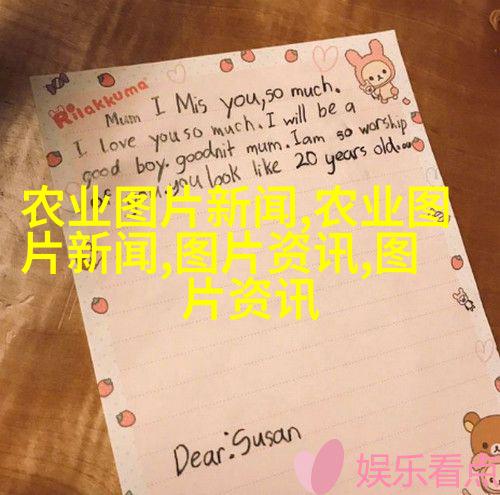 Rilakkuma
Mum I Mis you,so much.
I love you so much. I will be a
good boy. goodnit mum. I am so worship
you look like 20 years old.
农业图片新闻,农业图
片新闻,图片资讯,图
片资讯
Dear:Susan
娱乐看点